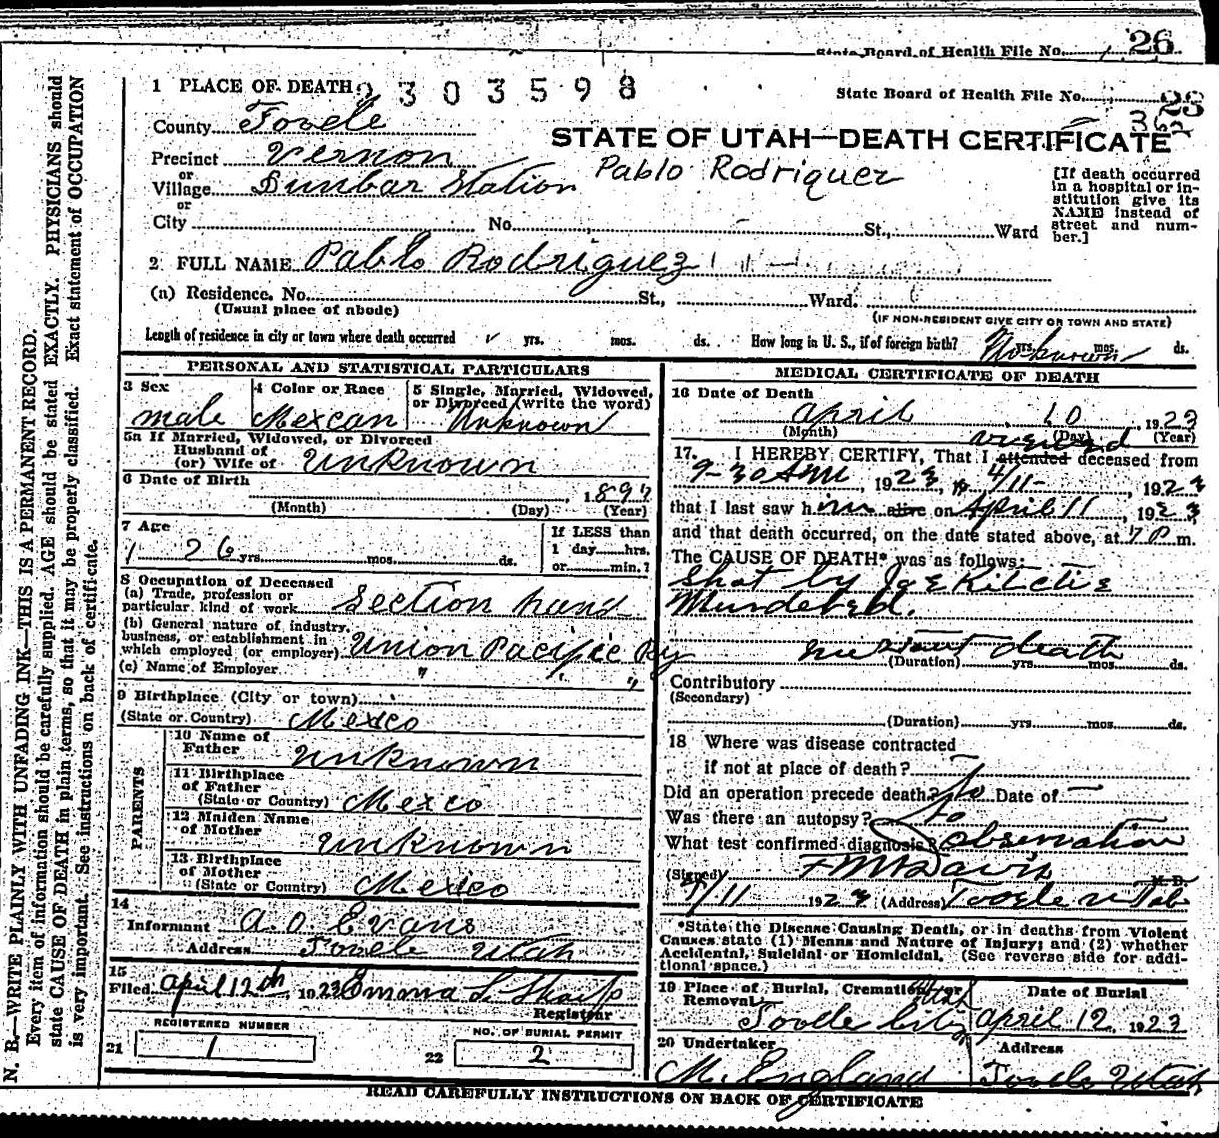 State Board of Health File No. 26
1 PLACE OF DEATH 2303598 State Board of Health File No. 23
County Tooele
STATE OF UTAH—DEATH CERTIFICATE
Precinct Vernon
Pablo Rodriquez
or
Village Dunbar Station
or
City No. St., Ward
[If death occurred
in a hospital or in-
stitution give its
NAME instead of
street and num-
ber.]
2 FULL NAME Pablo Rodriguez
(a) Residence. No. St., Ward.
(Usual place of abode) (IF NON-RESIDENT GIVE CITY OR TOWN AND STATE)
Length of residence in city or town where death occurred yrs. mos. ds. How long in U. S., if of foreign birth? Unknown yrs. mos. ds.
PERSONAL AND STATISTICAL PARTICULARS
3 Sex male
4 Color or Race Mexcan
5 Single, Married, Widowed,
or Divorced (write the word)
Unknown
5a If Married, Widowed, or Divorced
Husband of
(or) Wife of Unknown
6 Date of Birth 1897
(Month) (Day) (Year)
7 Age 26 yrs. mos. ds.
If LESS than
1 day hrs.
or min.?
8 Occupation of Deceased
(a) Trade, profession or
particular kind of work Section hand
(b) General nature of industry,
business, or establishment in
which employed (or employer) Union Pacific Ry
(c) Name of Employer " " "
9 Birthplace (City or town)
(State or Country) Mexico
PARENTS
10 Name of
Father Unknown
11 Birthplace
of Father
(State or Country) Mexco
12 Maiden Name
of Mother Unknown
13 Birthplace
of Mother
(State or Country) Mexco
14
Informant A. O. Evans
Address Tooele Utah
15
Filed April 12th, 1923 Emma L. Sharp
Registrar
REGISTERED NUMBER
21 1
NO. OF BURIAL PERMIT
22 2
MEDICAL CERTIFICATE OF DEATH
16 Date of Death
April 10 1923
(Month) (Day) (Year)
viewed
17. I HEREBY CERTIFY, That I attended deceased from
9-30 AM, 1923, to 4/11-, 1923
that I last saw him alive on April 11, 1923
and that death occurred, on the date stated above, at 7 P m.
The CAUSE OF DEATH* was as follows:
Shot by Joe Kitchie
Murdered.
instant death
(Duration) yrs. mos. ds.
Contributory
(Secondary)
(Duration) yrs. mos. ds.
18 Where was disease contracted
if not at place of death?
Did an operation precede death? No Date of
Was there an autopsy? No
What test confirmed diagnosis? Observation
(Signed) F M Davis M. D.
4/11 1923 (Address) Tooele Utah
*State the Disease Causing Death, or in deaths from Violent
Causes state (1) Means and Nature of Injury; and (2) whether
Accidental, Suicidal or Homicidal. (See reverse side for addi-
tional space.)
19 Place of Burial, Cremation or
Removal Utah
Tooele City
Date of Burial
April 12, 1923
20 Undertaker
M. England
Address
Tooele Utah
READ CAREFULLY INSTRUCTIONS ON BACK OF CERTIFICATE
N. B.—WRITE PLAINLY WITH UNFADING INK—THIS IS A PERMANENT RECORD.
Every item of information should be carefully supplied. AGE should be stated EXACTLY. PHYSICIANS should
state CAUSE OF DEATH in plain terms, so that it may be properly classified. Exact statement of OCCUPATION
is very important. See instructions on back of certificate.